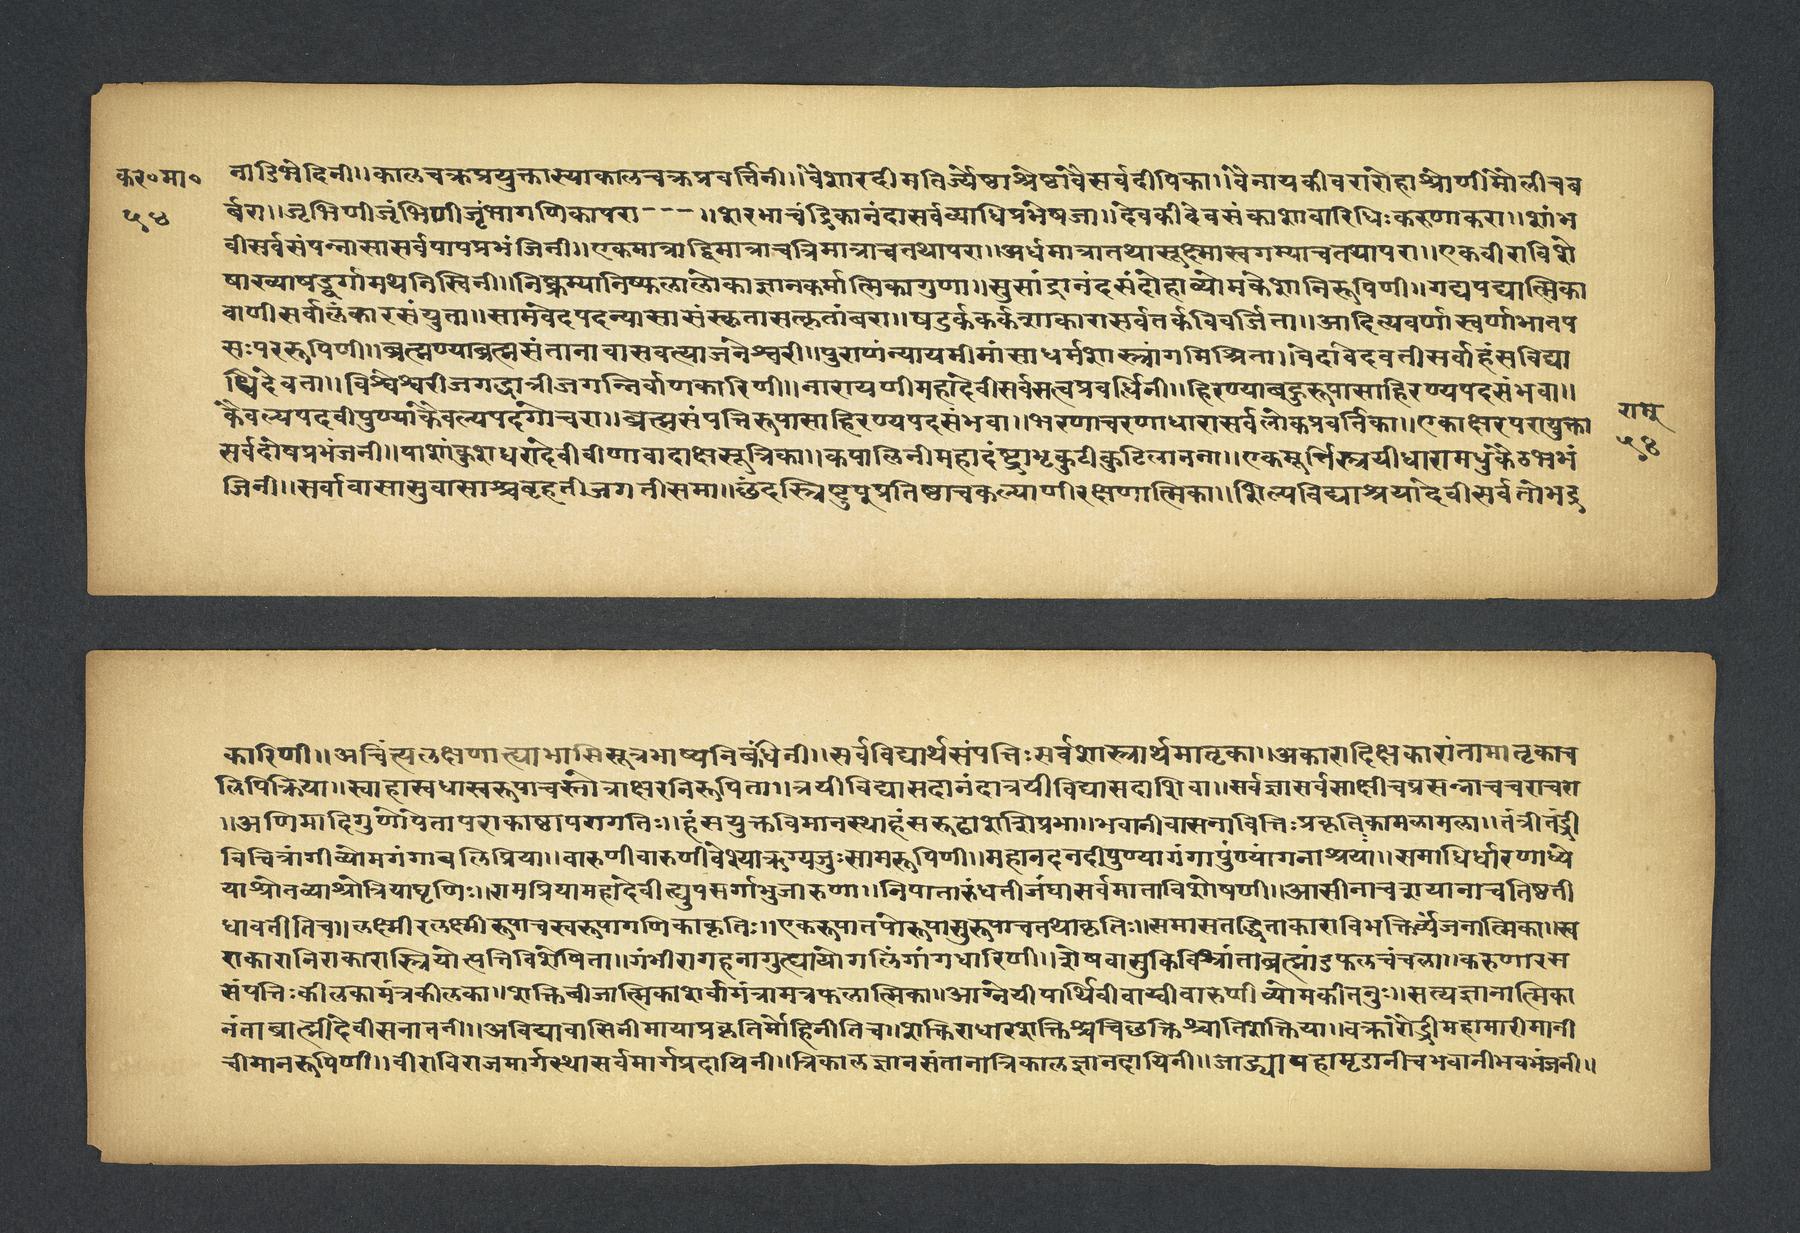 कर०मा०
५४
नाडिभेदिनी॥कालचक्रप्रयुक्तास्याकालचक्रप्रवर्त्तिनी॥वैशारदीमतिर्ज्येष्ठाश्रेष्ठावैसर्वदीपिका॥वैनायकीवरारोहाश्रोणीमौलीचब
र्बरा॥जृंभिणीजृंभिणीजृंभागणिकापरा---॥शरभाचंद्रिकानंदासर्वव्याधिप्रभेषजा॥देवकीदेवसंकाशावारिधिःकरुणाकरा॥शांभ
वीसर्वसंपन्नासासर्वपापप्रभंजिनी॥एकमात्राद्विमात्राचत्रिमात्राचतथापरा॥अर्धमात्रातथासूक्ष्मास्वगम्याचतथापरा॥एकवीराविशे
षाख्याषड्वर्गामथनिस्विनी॥निष्क्रम्यानिष्फलालोकाज्ञानकर्मात्मिकागुणा॥सुसांद्रानंदसंदोहाव्योमकेशनिरूपिणी॥गद्यपद्यात्मिका
वाणीसर्वालंकारसंयुता॥सामवेदपदन्यासासंस्कृतासत्कृतांबरा॥षडर्ककर्कशाकारासर्वतर्कविवर्जिता॥आदित्यवर्णास्वर्णाभातप
सःपररूपिणी॥ब्रह्मण्याब्रह्मसंतानावासवत्याजनेश्वरी॥पुराणंन्यायमीमांसाधर्मशास्त्रांगमिश्रिता॥वेदावेदवतीसर्वाहंसविद्या
धिदेवता॥विश्वेश्वरीजगद्धात्रीजगन्निर्वाणकारिणी॥नारायणीमहादेवीसर्वसत्वप्रवर्धिनी॥हिरण्याबहुरूपासाहिरण्यपदसंभवा॥
कैवल्यपदवीपुण्याकैवल्यपदगोचरा॥ब्रह्मसंपत्तिरूपासाहिरण्यपदसंभवा॥भरणाचरणाधारासर्वलोकप्रवर्तिका॥एकाक्षरपरायुक्ता
राम
सर्वदोषप्रभंजनी॥पाशांकुशधरादेवीवीणावादाक्षसूत्रिका॥कपालिनीमहादंष्ट्राभृकुटीकुटिलानना॥एकमूर्त्तिस्त्रयीधारामधुकैठभभं
५४
जिनी॥सर्वावासासुवासाश्चबृहतीजगतीसमा॥छंदस्त्रिष्टुपुप्रतिष्ठाचकल्याणीरक्षणात्मिका॥शिल्पविद्याश्रयादेवीसर्वतोभद्र
कारिणी॥अचिंत्यलक्षणात्त्याभासिसूत्रभाष्यनिबंधिनी॥सर्वविद्यार्थसंपत्तिःसर्वशास्त्रार्थमातृका॥अकारादिक्षकारांतामातृकाच
लिपिक्रिया॥स्वाहास्वधास्वरूपाचस्तोत्राक्षरनिरूपिता॥त्रयीविद्यासदानंदात्रयीविद्यासदाशिवा॥सर्वज्ञासर्वसाक्षीचप्रसन्नाचचराचरा
॥अणिमादिगुणोपेतापराकाष्ठापरागतिः॥हंसयुक्तविमानस्थाहंसरूढाशशिप्रभा॥भवानीवासनावित्तिःप्रकृतिकामळामला॥तंत्रीतंद्री
विचित्रांगीव्योमगंगाबलिप्रिया॥वारुणीवारुणीवेश्याऋग्यजुःसामरूपिणी॥महानदनदीपुण्यागंगापुण्यांगनाश्रया॥समाधिर्धारणाध्ये
याश्रोतव्याश्रोत्रियाघृणिः॥रामप्रियामहादेवीत्युपसर्गाभुजारुणा॥निपातारुंधतीजंघासर्वमाताविशेषणी॥आसीनाचशयानाचतिष्ठती
धावतीतिच॥लक्ष्मीरलक्ष्मीरूपाचस्वरूपागणिकाकृतिः॥एकरूपातपोरूपासुरूपाचतथाकृतिः॥समासतद्धिताकाराविभक्तिर्व्यंजनात्मिका॥स
राकारानिराकारास्त्रियोत्पत्तिविशेषिता॥गंभीरागहनागुह्यायोगलिंगांगधारिणी॥शेषवासुकिविश्रांताब्रह्मांडफलचंचला॥करुणारम
संपत्तिःकीलकामंत्रकीलका॥शक्तिबीजात्मिकाशर्वागंत्रामत्रफलात्मिका॥आग्नेयीपार्थिवीवायवीवारुणीव्योमकीतनुः॥सत्यज्ञानात्मिका
नंताब्राह्मीदेवीसनातनी॥अविद्यावासिनीमायाप्रकृतिर्मोहिनीतिच॥शक्तिराधारशक्तिश्चचिछक्तिश्चातिशक्तिया॥वक्त्रारौद्रीमहामारीमानी
चीमानरूपिणी॥वीराविराजमार्गस्थासर्वमार्गप्रदायिनी॥त्रिकालज्ञानसंतानात्रिकालज्ञानदायिनी॥जाड्यापहामृडानीचभवानीभवभंजनी॥